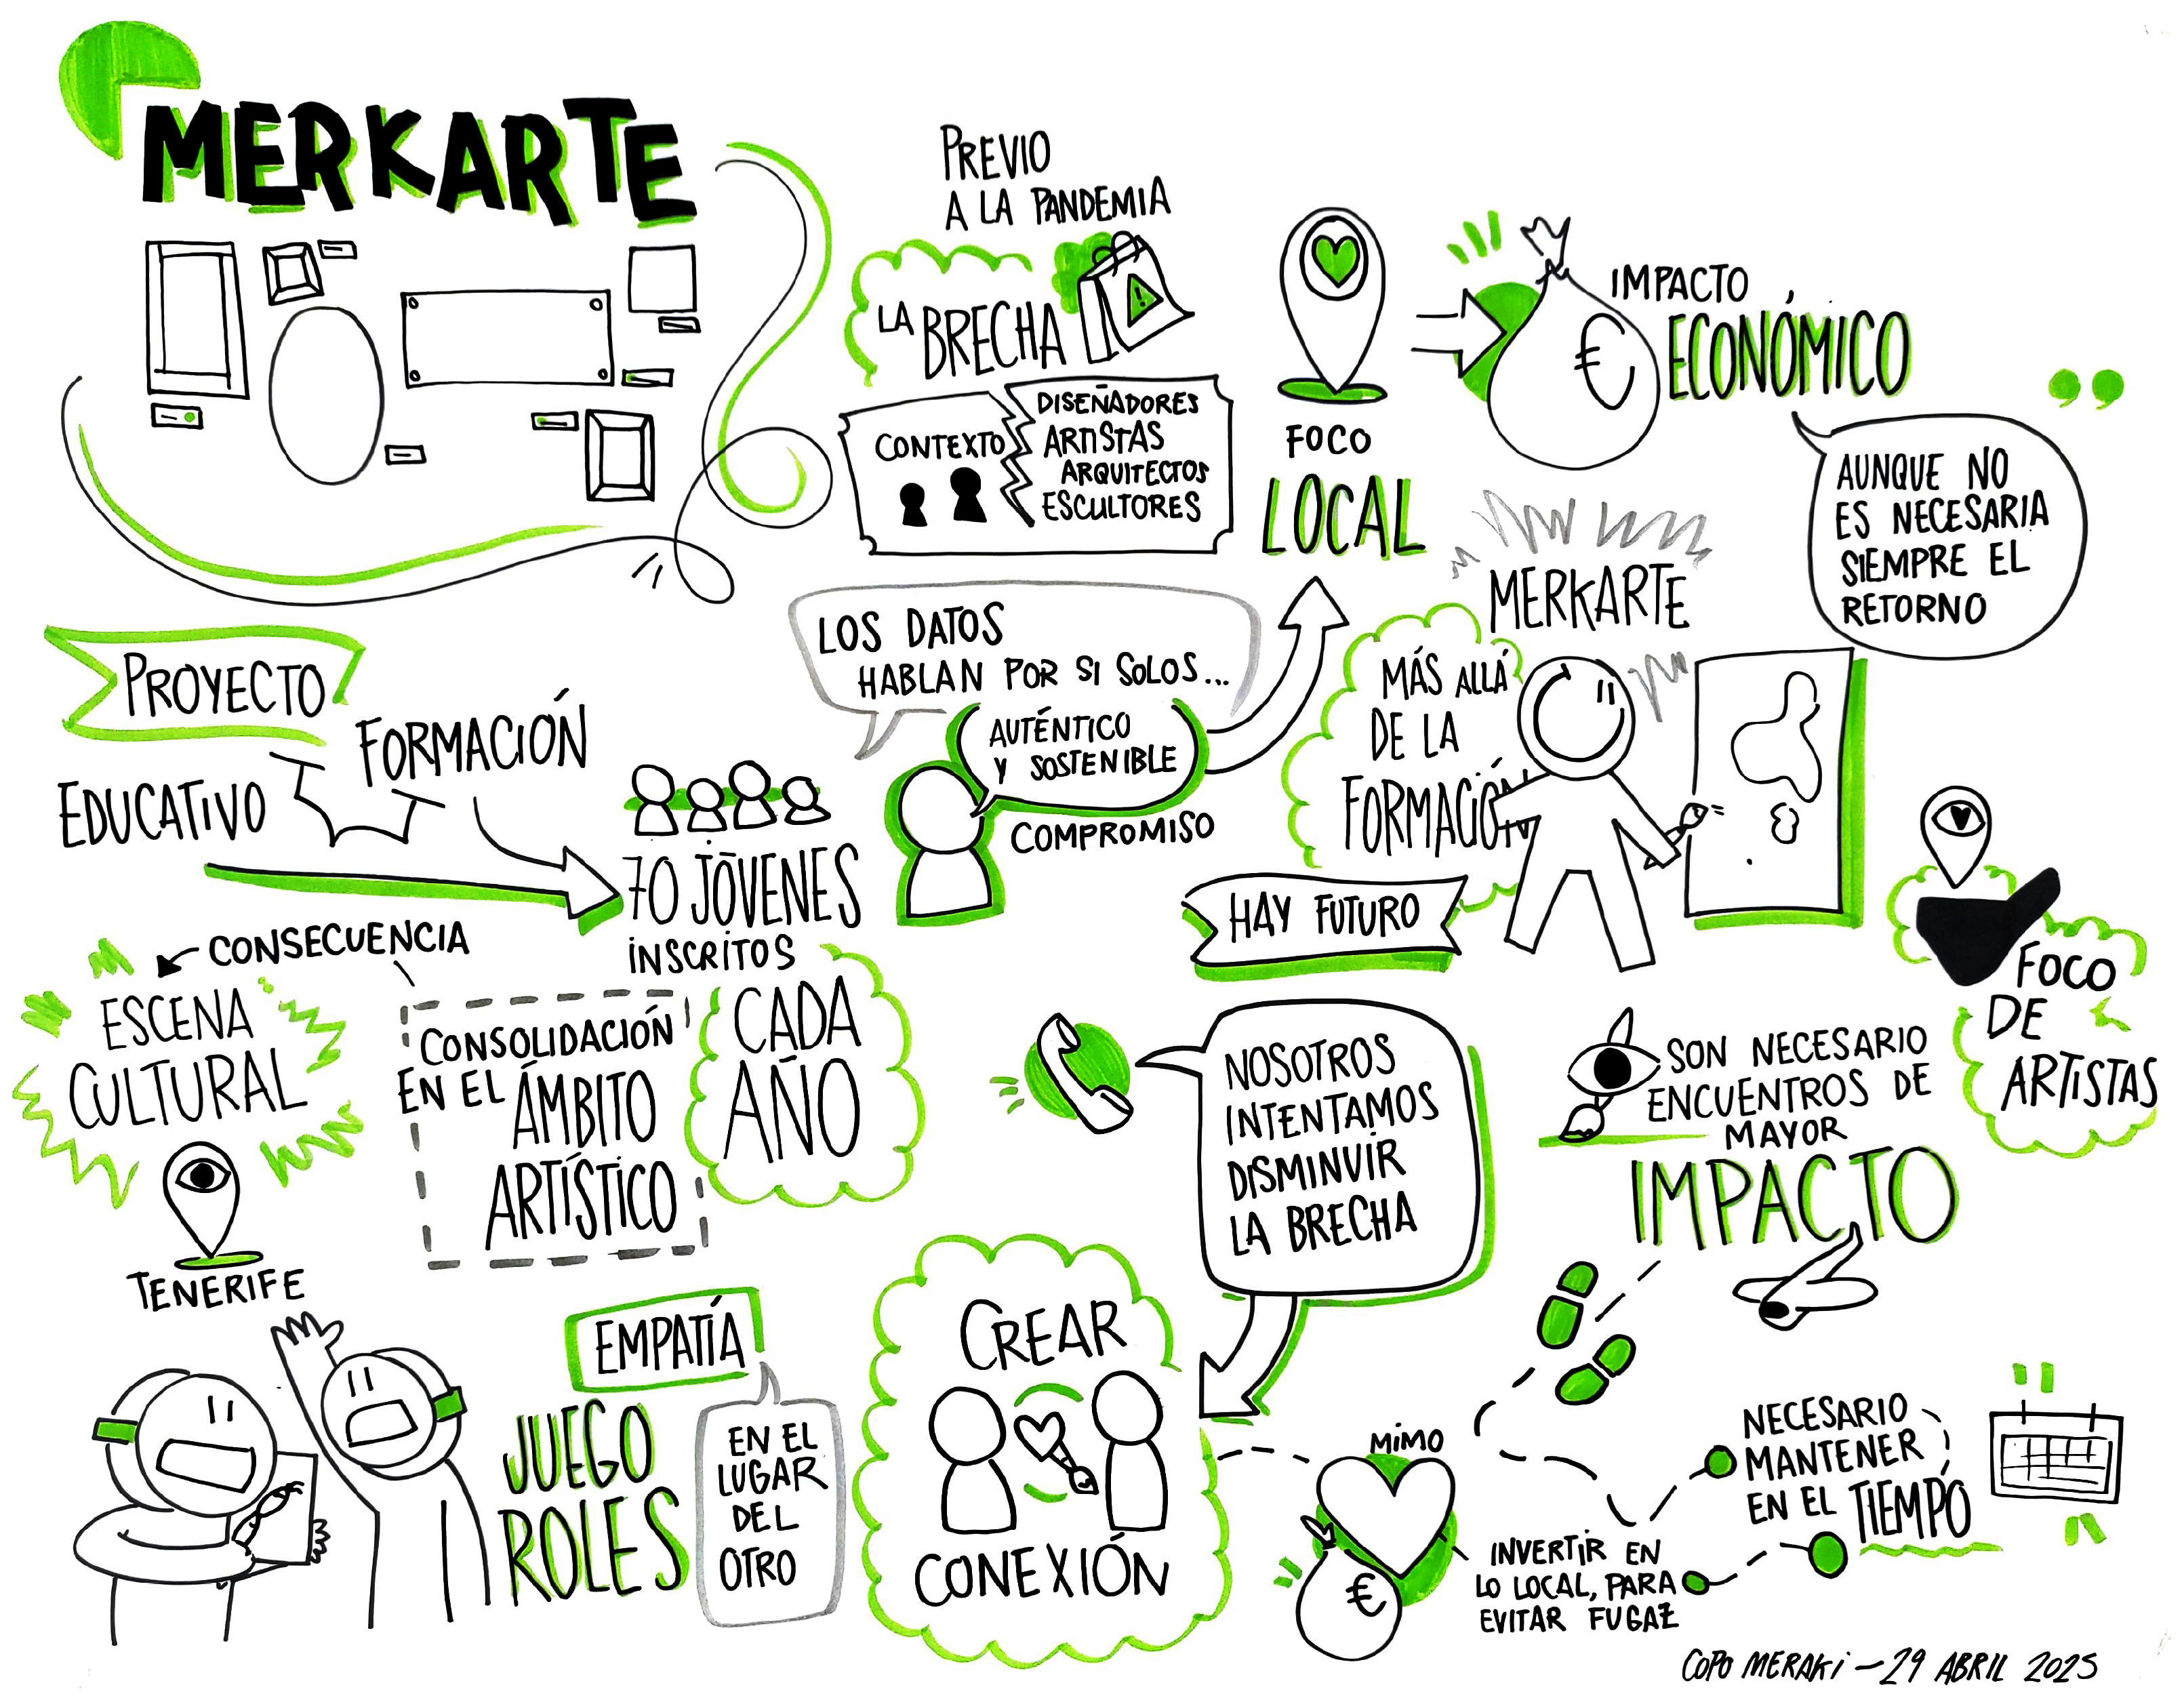 MERKARTE
PREVIO
A LA PANDEMIA
LA
BRECHA
CONTEXTO
DISEÑADORES
ARTISTAS
ARQUITECTOS
ESCULTORES
FOCO
LOCAL
€
IMPACTO
ECONÓMICO
AUNQUE NO
ES NECESARIA
SIEMPRE EL
RETORNO
PROYECTO
EDUCATIVO
FORMACIÓN
70 JÓVENES
INSCRITOS
CADA
AÑO
LOS DATOS
HABLAN POR SI SOLOS...
AUTÉNTICO
Y SOSTENIBLE
COMPROMISO
MERKARTE
MÁS ALLÁ
DE LA
FORMACIÓN
HAY FUTURO
FOCO
DE
ARTISTAS
CONSECUENCIA
ESCENA
CULTURAL
TENERIFE
CONSOLIDACIÓN
EN EL ÁMBITO
ARTÍSTICO
NOSOTROS
INTENTAMOS
DISMINUIR
LA BRECHA
SON NECESARIO
ENCUENTROS DE
MAYOR
IMPACTO
EMPATÍA
JUEGO
ROLES
EN EL
LUGAR
DEL
OTRO
CREAR
CONEXIÓN
MIMO
€
INVERTIR EN
LO LOCAL, PARA
EVITAR FUGAZ
NECESARIO
MANTENER
EN EL TIEMPO
COPO MERAKI - 29 ABRIL 2025